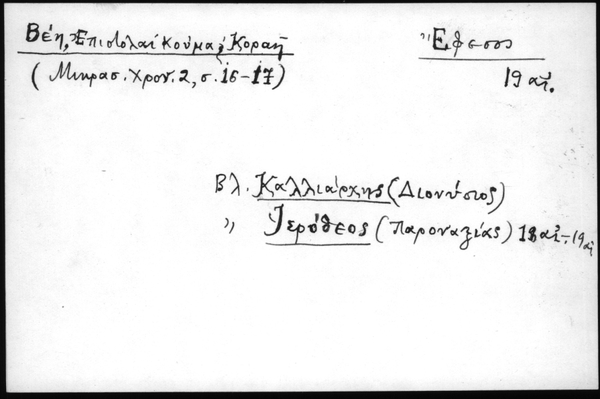 Βέη, Ἐπιστολαί Κούμα, Κοραῆ
Ἔφεσος
(Μικρασ. Χρον. 2, σ. 16-17)
19 αἰ.
Βλ. Καλλιάρχης (Διονύσιος)
" Ἱερόθεος (Παροναξίας) 18 αἰ.-19 αἰ